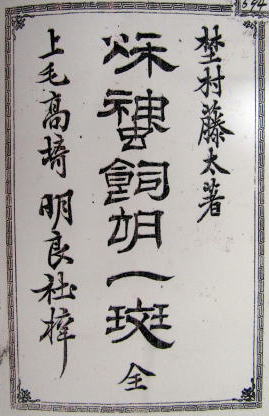 埜村藤太著
秌飼一斑
全
上毛高埼 明良社梓